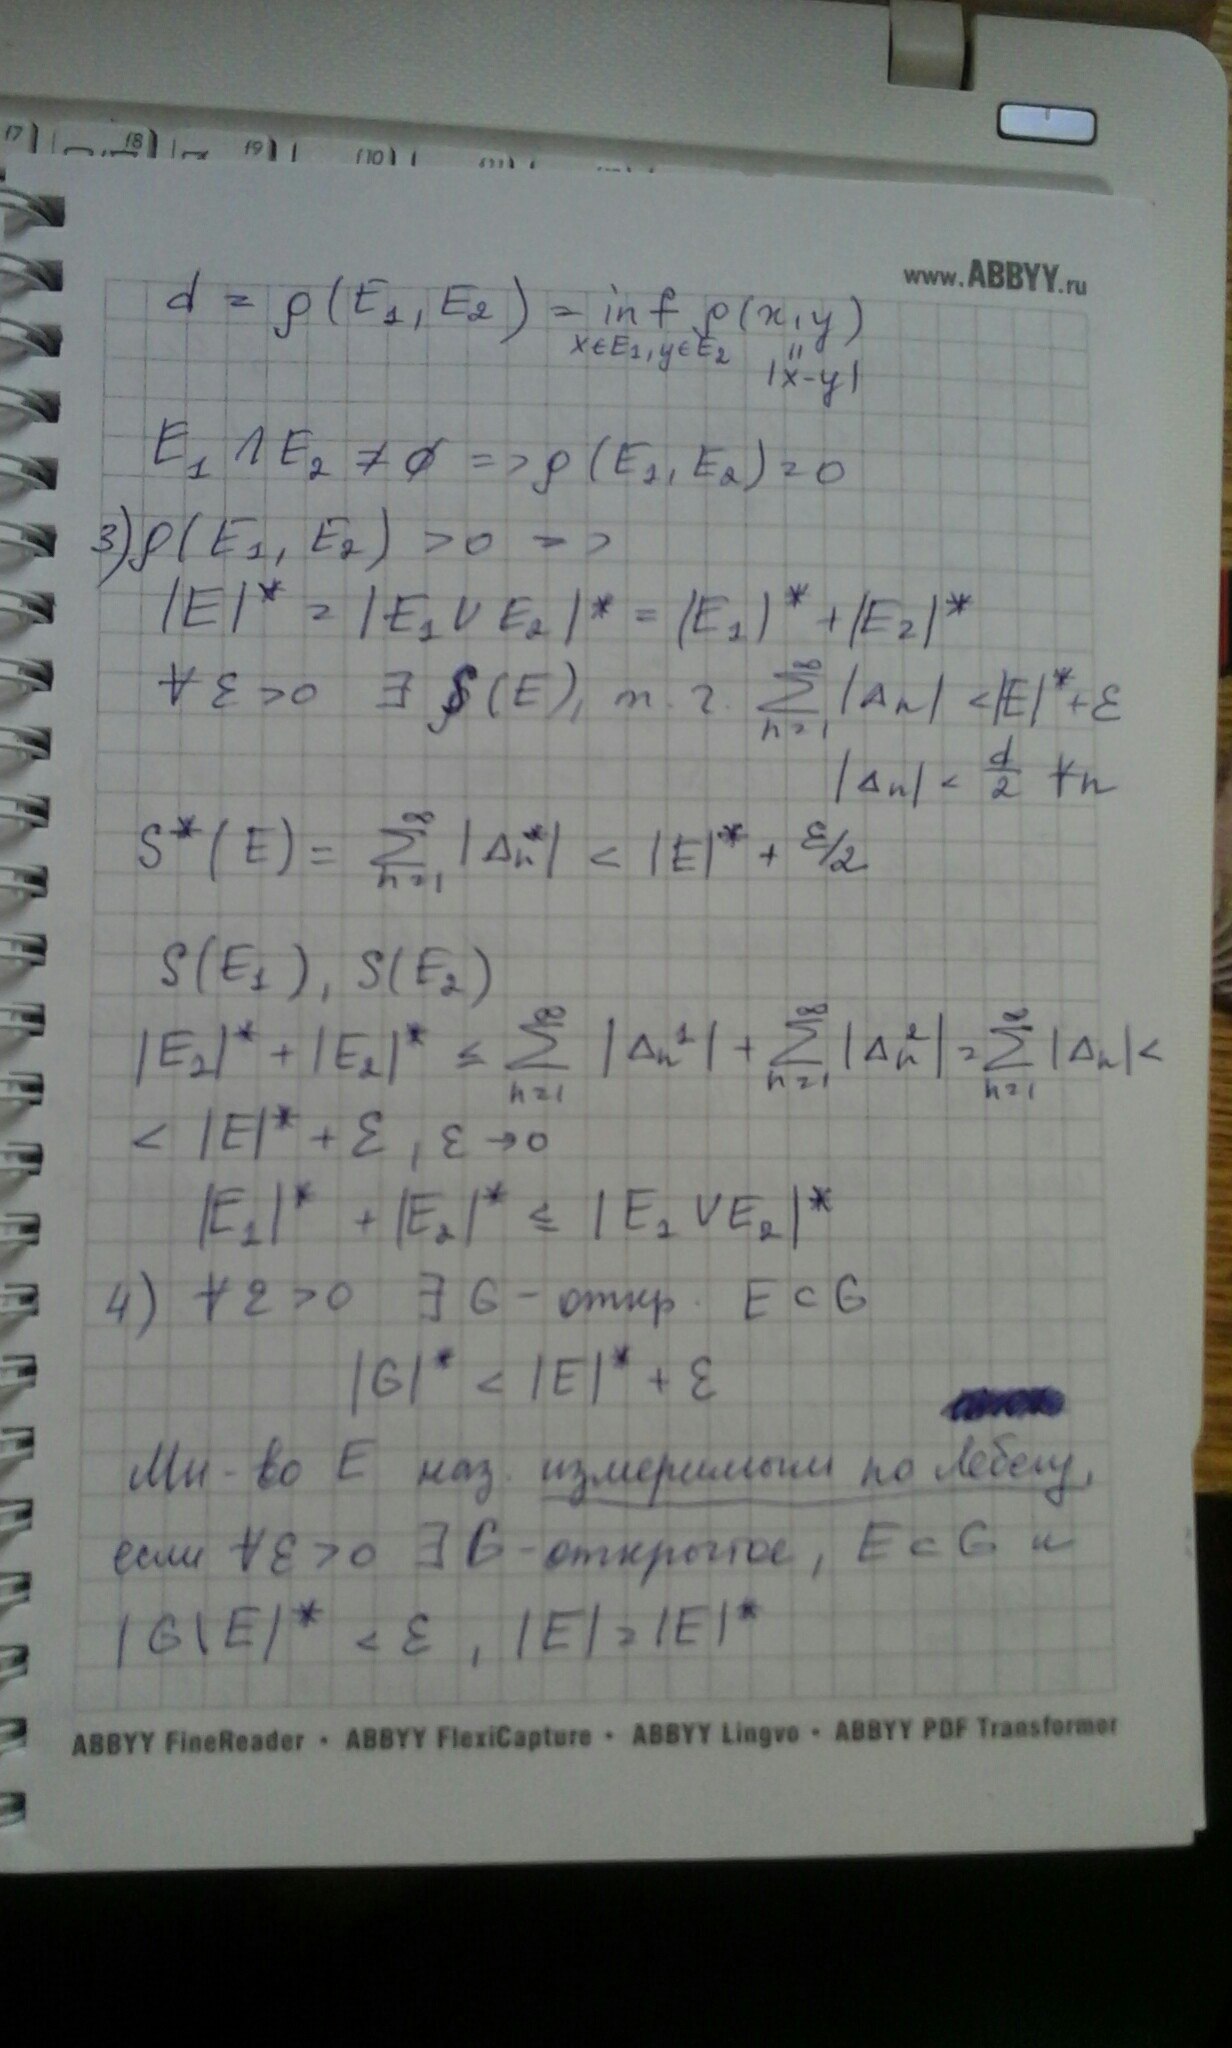 17) 18) 19) (10)
www.ABBYY.ru
d = ρ(E₁, E₂) = inf ρ(x, y)
x∈E₁, y∈E₂ "
|x-y|
E₁ ∧ E₂ ≠ ∅ => ρ(E₁, E₂) = 0
3) ρ(E₁, E₂) > 0 =>
|E|* = |E₁ ∨ E₂|* = |E₁|* + |E₂|*
∀ ε > 0 ∃ S(E), т. ч. ∑ₙ₌₁^∞ |Δₙ| < |E|* + ε
|Δₙ| < d/2 ∀n
S*(E) = ∑ₙ₌₁^∞ |Δₙ*| < |E|* + ε/2
S(E₁), S(E₂)
|E₂|* + |E₂|* ≤ ∑ₙ₌₁^∞ |Δₙ¹| + ∑ₙ₌₁^∞ |Δₙ²| = ∑ₙ₌₁^∞ |Δₙ| <
< |E|* + ε, ε → 0
|E₁|* + |E₂|* ≤ |E₁ ∨ E₂|*
4) ∀ ε > 0 ∃ G - откр. E ⊂ G
|G|* < |E|* + ε
Мн-во E наз. измеримым по Лебегу,
если ∀ε > 0 ∃ G - открытое, E ⊂ G и
|G\E|* < ε, |E| = |E|*
ABBYY FineReader • ABBYY FlexiCapture • ABBYY Lingvo • ABBYY PDF Transformer